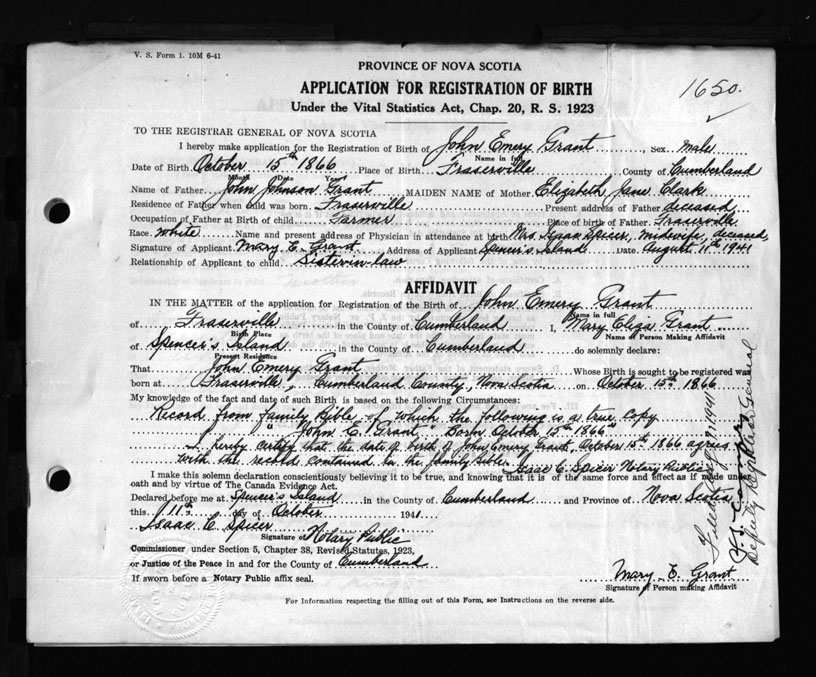 V. S. Form 1. 10M 6-41
PROVINCE OF NOVA SCOTIA
APPLICATION FOR REGISTRATION OF BIRTH
1650.
Under the Vital Statistics Act, Chap. 20, R. S. 1923
TO THE REGISTRAR GENERAL OF NOVA SCOTIA
I hereby make application for the Registration of Birth of John Emery Grant, Sex male
Name in full
Date of Birth October 15th 1866 Place of Birth Fraserville County of Cumberland
Month Date Year
Name of Father John Johnson Grant MAIDEN NAME of Mother Elizabeth Jane Clark
Residence of Father when child was born Fraserville Present address of Father deceased
Occupation of Father at Birth of child Farmer Place of birth of Father Fraserville
Race White Name and present address of Physician in attendance at birth Mrs. Isaac Spicer, midwife, deceased,
Signature of Applicant Mary E. Grant Address of Applicant Spencer's Island Date August 11th 1941
Relationship of Applicant to child Sister in-law
AFFIDAVIT
IN THE MATTER of the application for Registration of the Birth of John Emery Grant
Name in full
of Fraserville in the County of Cumberland I, Mary Eliza Grant
Birth Place Name of Person Making Affidavit
of Spencer's Island in the County of Cumberland do solemnly declare:
Present Residence
That John Emery Grant Whose Birth is sought to be registered was
born at Fraserville, Cumberland County, Nova Scotia on October 15th 1866
My knowledge of the fact and date of such Birth is based on the following Circumstances:
Record from family Bible of which the following is a true copy
" John E. Grant " Born October 15th 1866"
I hereby certify that the date of birth of John Emery Grant, October 15th 1866 agrees
with the record contained in the family Bible. Isaac C. Spicer Notary Public
I make this solemn declaration conscientiously believing it to be true, and knowing that it is of the same force and effect as if made under
oath and by virtue of The Canada Evidence Act.
Declared before me at Spencer's Island in the County of Cumberland and Province of Nova Scotia,
this 11th day of October 1941
Isaac C. Spicer
Signature of Notary Public
Commissioner under Section 5, Chapter 38, Revised Statutes, 1923,
or Justice of the Peace in and for the County of Cumberland
If sworn before a Notary Public affix seal.
Mary E. Grant
Signature of Person making Affidavit
For Information respecting the filling out of this Form, see Instructions on the reverse side.
Deputy Registrar General